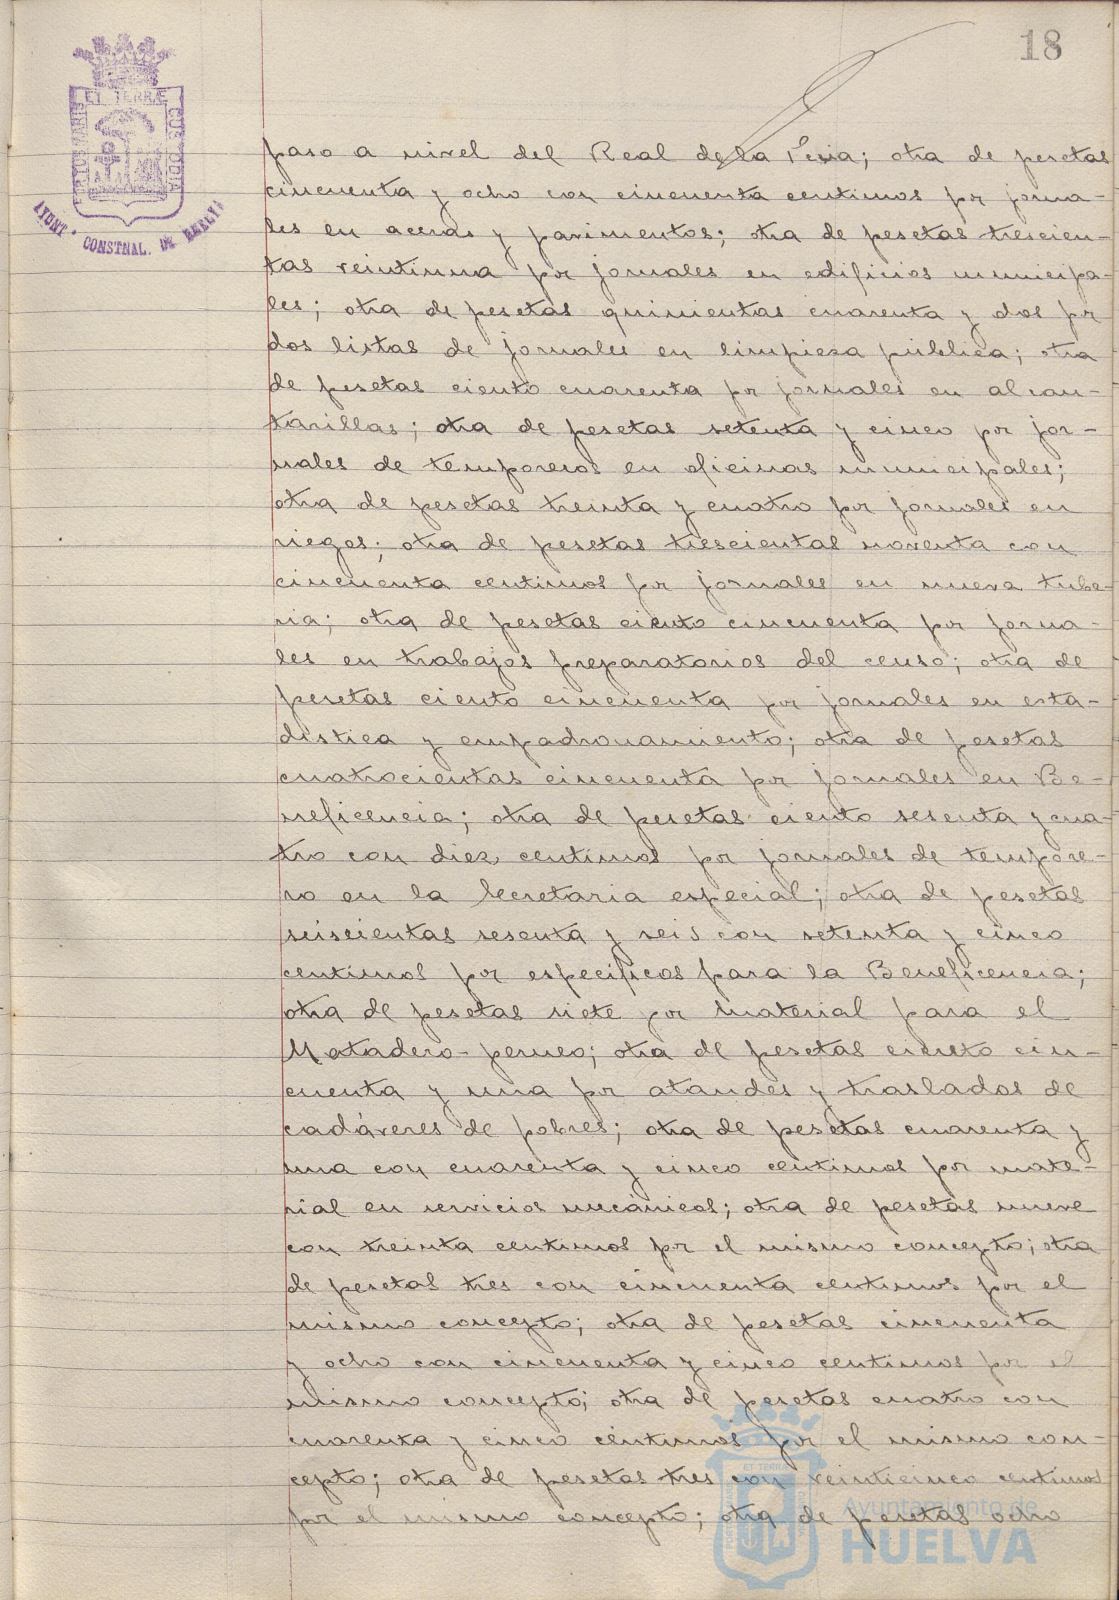 18
ET TERRÆ
PORTUS MARIS
CUSTODIA
AYUNT. CONSTNAL. DE HUELVA
paso a nivel del Real de la Feria; otra de pesetas
cincuenta y ocho con cincuenta centimos por jorna-
les en aceras y pavimentos; otra de pesetas trescien-
tas veintiuna por jornales en edificios municipa-
les; otra de pesetas quinientas cuarenta y dos por
dos listas de jornales en limpieza pública; otra
de pesetas ciento cuarenta por jornales en alcan-
tarillas; otra de pesetas setenta y cinco por jor-
nales de temporeros en oficinas municipales;
otra de pesetas treinta y cuatro por jornales en
riegos; otra de pesetas trescientas noventa con
cincuenta centimos por jornales en nueva tube-
ria; otra de pesetas ciento cincuenta por jorna-
les en trabajos preparatorios del censo; otra de
pesetas ciento cincuenta por jornales en esta-
distica y empadronamiento; otra de pesetas
cuatrocientas cincuenta por jornales en Be-
neficencia; otra de pesetas ciento sesenta y cua-
tro con diez centimos por jornales de tempore-
ro en la Secretaria especial; otra de pesetas
seiscientas sesenta y seis con setenta y cinco
centimos por especificos para la Beneficencia;
otra de pesetas siete por material para el
Matadero-perneo; otra de pesetas ciento cin-
cuenta y una por ataudes y traslados de
cadáveres de pobres; otra de pesetas cuarenta y
una con cuarenta y cinco centimos por mate-
rial en servicios mecánicos; otra de pesetas nueve
con treinta centimos por el mismo concepto; otra
de pesetas tres con cincuenta centimos por el
mismo concepto; otra de pesetas cincuenta
y ocho con cincuenta y cinco centimos por el
mismo concepto; otra de pesetas cuatro con
cuarenta y cinco centimos por el mismo con-
cepto; otra de pesetas tres con veinticinco centimos
por el mismo concepto; otra de pesetas ocho
Ayuntamiento de
HUELVA